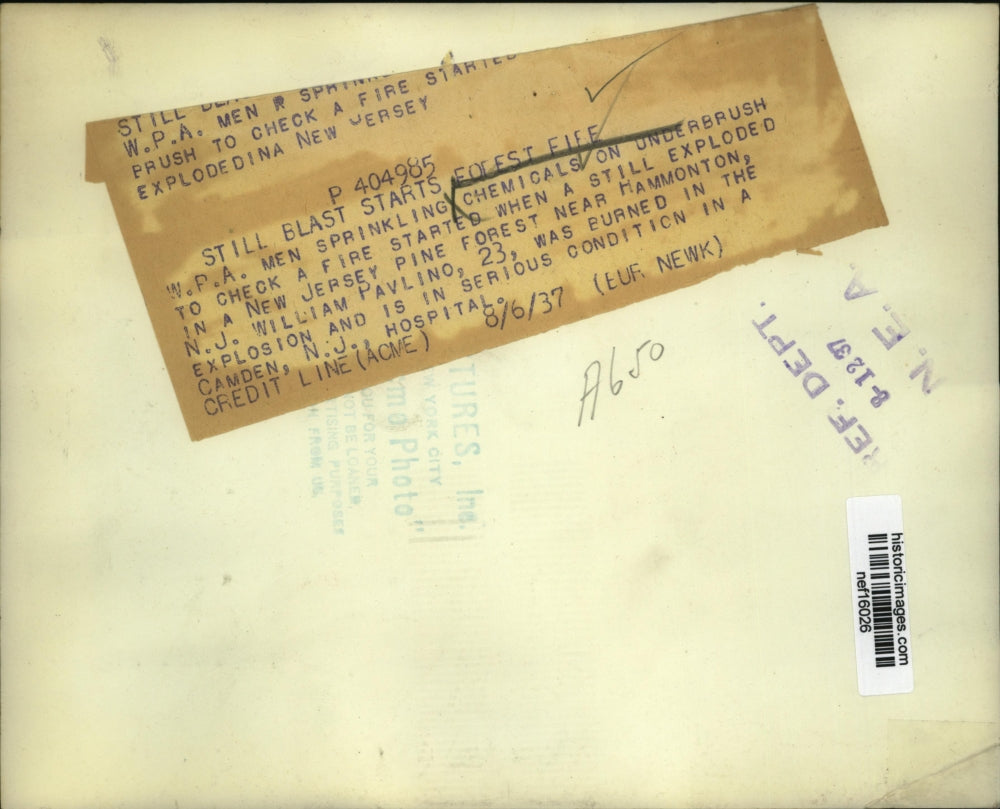 STILL
W.P.A. MEN R SPRINK
PRUSH TO CHECK A FIRE STARTED
EXPLODEDINA NEW JERSEY
P 404985
STILL BLAST STARTS FOLEST FIFE
W.P.A. MEN SPRINKLING CHEMICALS ON UNDERBRUSH
TO CHECK A FIRE STARTED WHEN A STILL EXPLODED
IN A NEW JERSEY PINE FOREST NEAR HAMMONTON,
N.J. WILLIAM PAVLINO, 23, WAS BURNED IN THE
EXPLOSION AND IS IN SERIOUS CONDITION IN A
CAMDEN, N.J., HOSPITAL.
CREDIT LINE (ACME) 8/6/37 (EUF. NEWK)
A650
REF. DEPT.
8-12 37
N. E. A.
TURES, Inc.
YORK CITY
Photo"
OU FOR YOUR
NOT BE LOANED,
TISING PURPOSES
FROM US.
historicimages.com
nef16026